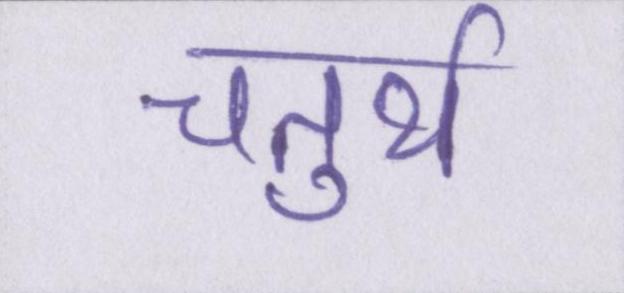 चतुर्थ